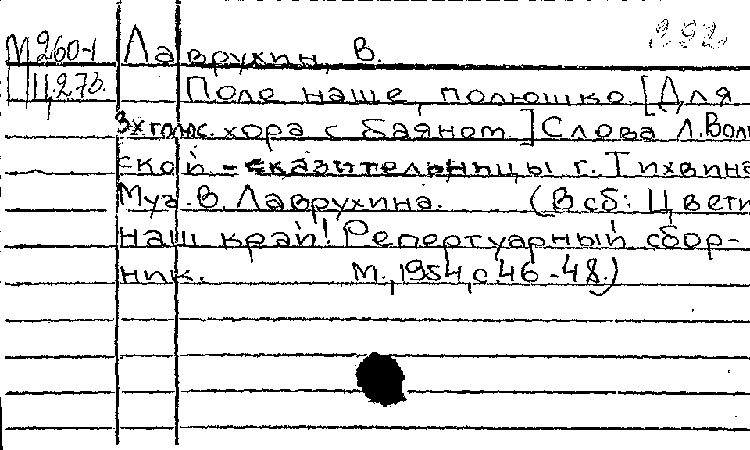 М260-1 Лаврухин, В.
Ц276. Поле наше, полюшко [Для
3хголос. хора с баяном.] Слова Л. Воль
ской - сказительницы г. Тихвина
Муз. В. Лаврухина. (В сб: Цвети
наш край! Репертуарный сбор-
ник. М., 1954, с.46-48.)